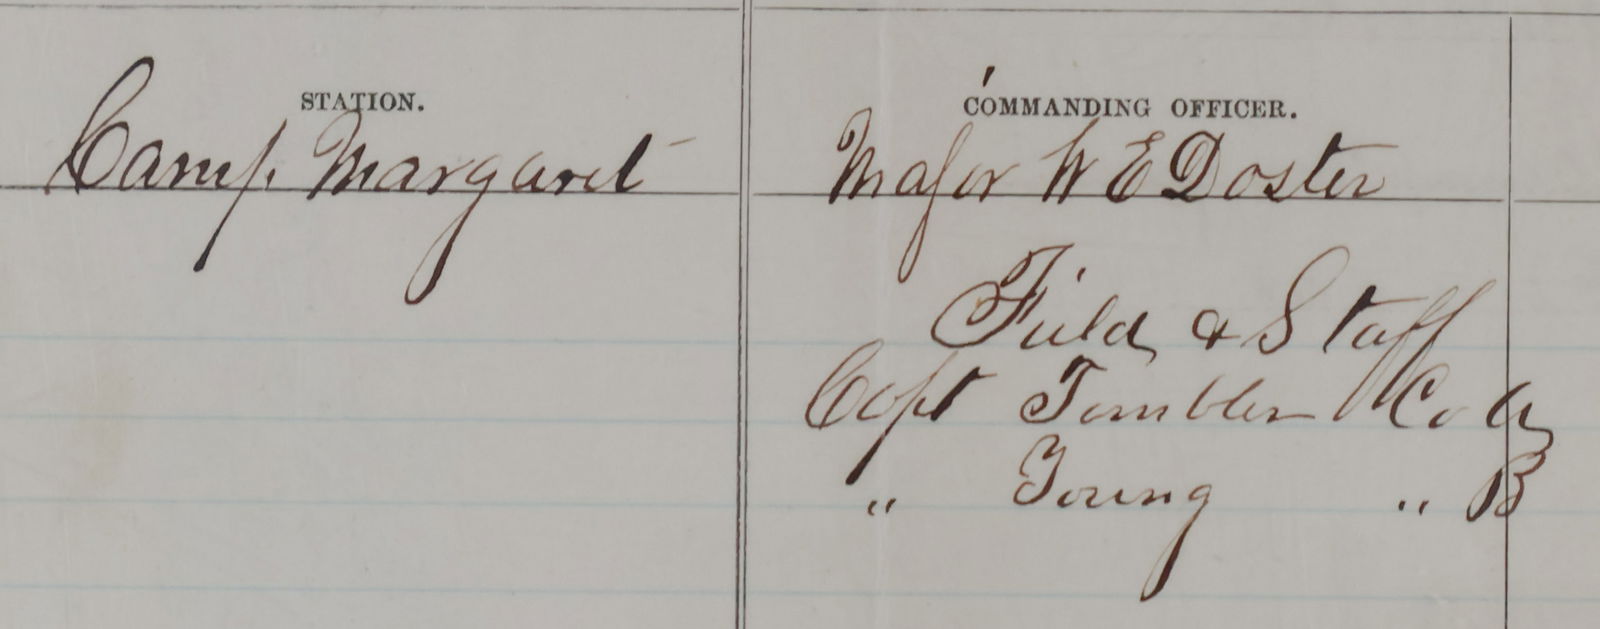 STATION.
Camp Margaret
COMMANDING OFFICER.
Major W E Doster
Field & Staff
Capt Tombler Co A
" Young " B